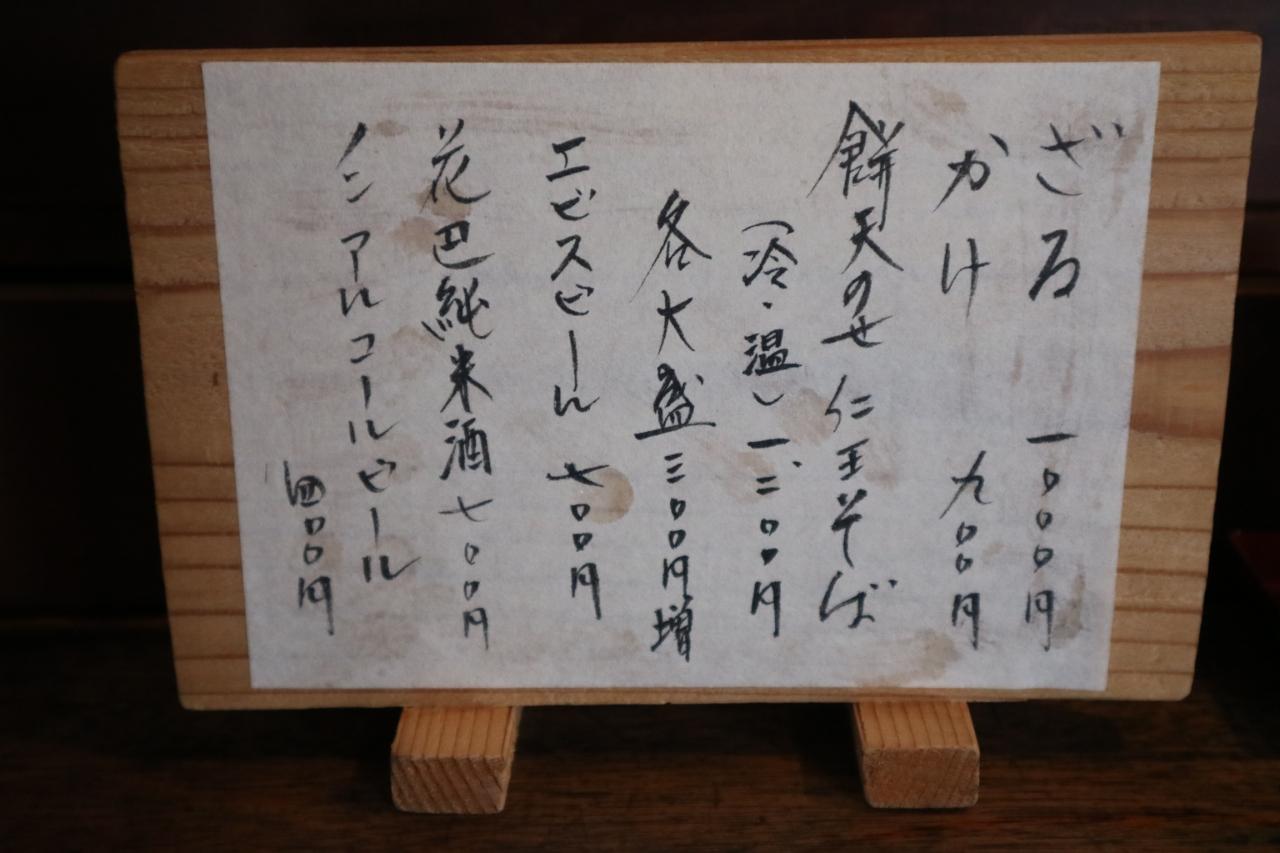 ざる 一〇〇〇円
かけ 九〇〇円
餅天のせ仁王そば
(冷・温) 一、二〇〇円
各大盛三〇〇円増
エビスビール 七〇〇円
花巴純米酒七〇〇円
ノンアルコールビール
四〇〇円